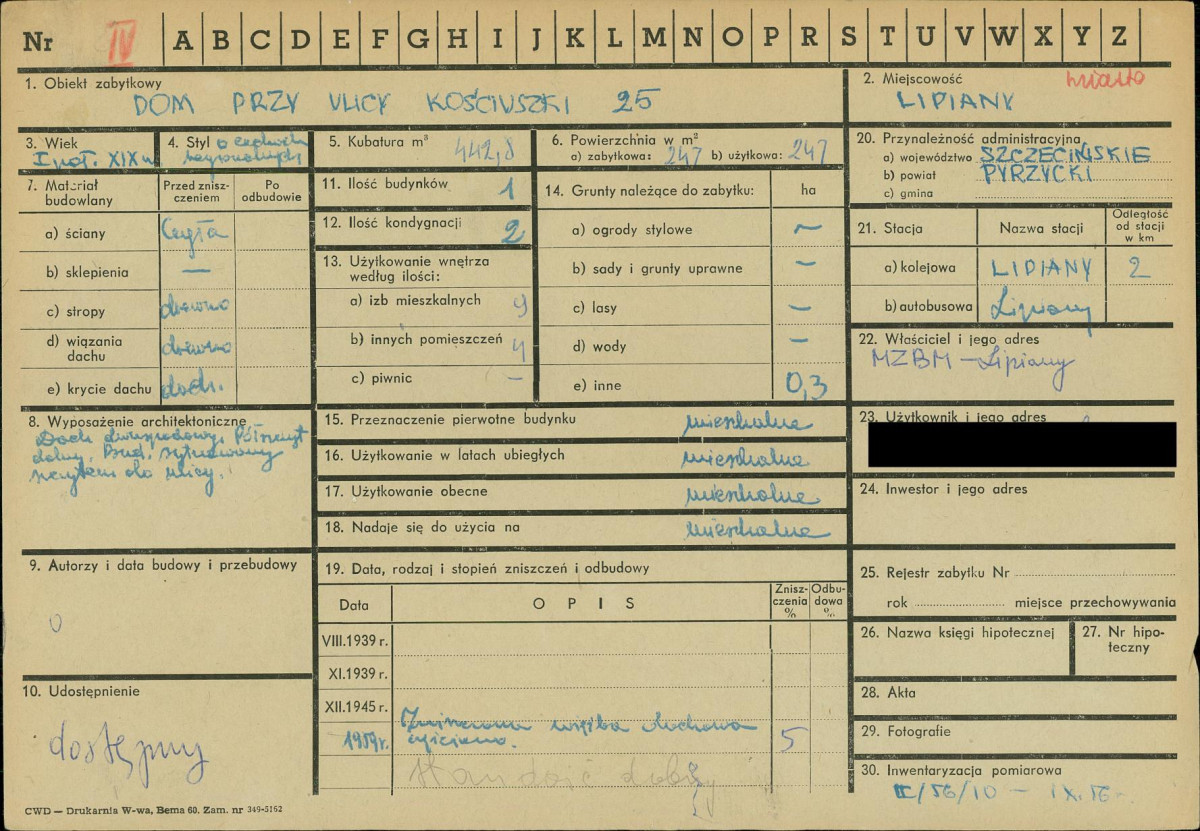 Nr IV A B C D E F G H I J K L M N O P R S T U V W X Y Z
1. Obiekt zabytkowy
DOM PRZY ULICY KOŚCIUSZKI 25
2. Miejscowość miasto
LIPIANY
3. Wiek
I poł. XIX w
4. Styl o cechach
regionalnych
5. Kubatura m³ 442,8
6. Powierzchnia w m²
a) zabytkowa: 247 b) użytkowa: 247
7. Materiał budowlany
Przed zniszczeniem
Po odbudowie
a) ściany Cegła
b) sklepienia —
c) stropy drewno
d) wiązania dachu drewno
e) krycie dachu dach.
8. Wyposażenie architektoniczne
Dach dwuspadowy. Półszczyt
dolny. Bud. sytuowany
szczytem do ulicy.
9. Autorzy i data budowy i przebudowy
0
10. Udostępnienie
dostępny
11. Ilość budynków 1
12. Ilość kondygnacji 2
13. Użytkowanie wnętrza
według ilości:
a) izb mieszkalnych 9
b) innych pomieszczeń 4
c) piwnic —
14. Grunty należące do zabytku: ha
a) ogrody stylowe ~
b) sady i grunty uprawne —
c) lasy —
d) wody —
e) inne 0,3
15. Przeznaczenie pierwotne budynku mieszkalne
16. Użytkowanie w latach ubiegłych mieszkalne
17. Użytkowanie obecne mieszkalne
18. Nadaje się do użycia na mieszkalne
19. Data, rodzaj i stopień zniszczeń i odbudowy
Data OPIS Zniszczenia % Odbudowa %
VIII.1939 r.
XI.1939 r.
XII.1945 r.
1959 r. więźba dachowa
5
dobry
20. Przynależność administracyjna
a) województwo SZCZECIŃSKIE
b) powiat PYRZYCKI
c) gmina
21. Stacja Nazwa stacji Odległość od stacji w km
a) kolejowa LIPIANY 2
b) autobusowa Lipiany
22. Właściciel i jego adres
MZBM — Lipiany
23. Użytkownik i jego adres
24. Inwestor i jego adres
25. Rejestr zabytku Nr
rok miejsce przechowywania
26. Nazwa księgi hipotecznej
27. Nr hipoteczny
28. Akta
29. Fotografie
30. Inwentaryzacja pomiarowa
/56/10 — IX.56 r.
CWD — Drukarnia W-wa, Bema 60. Zam. nr 349-5162